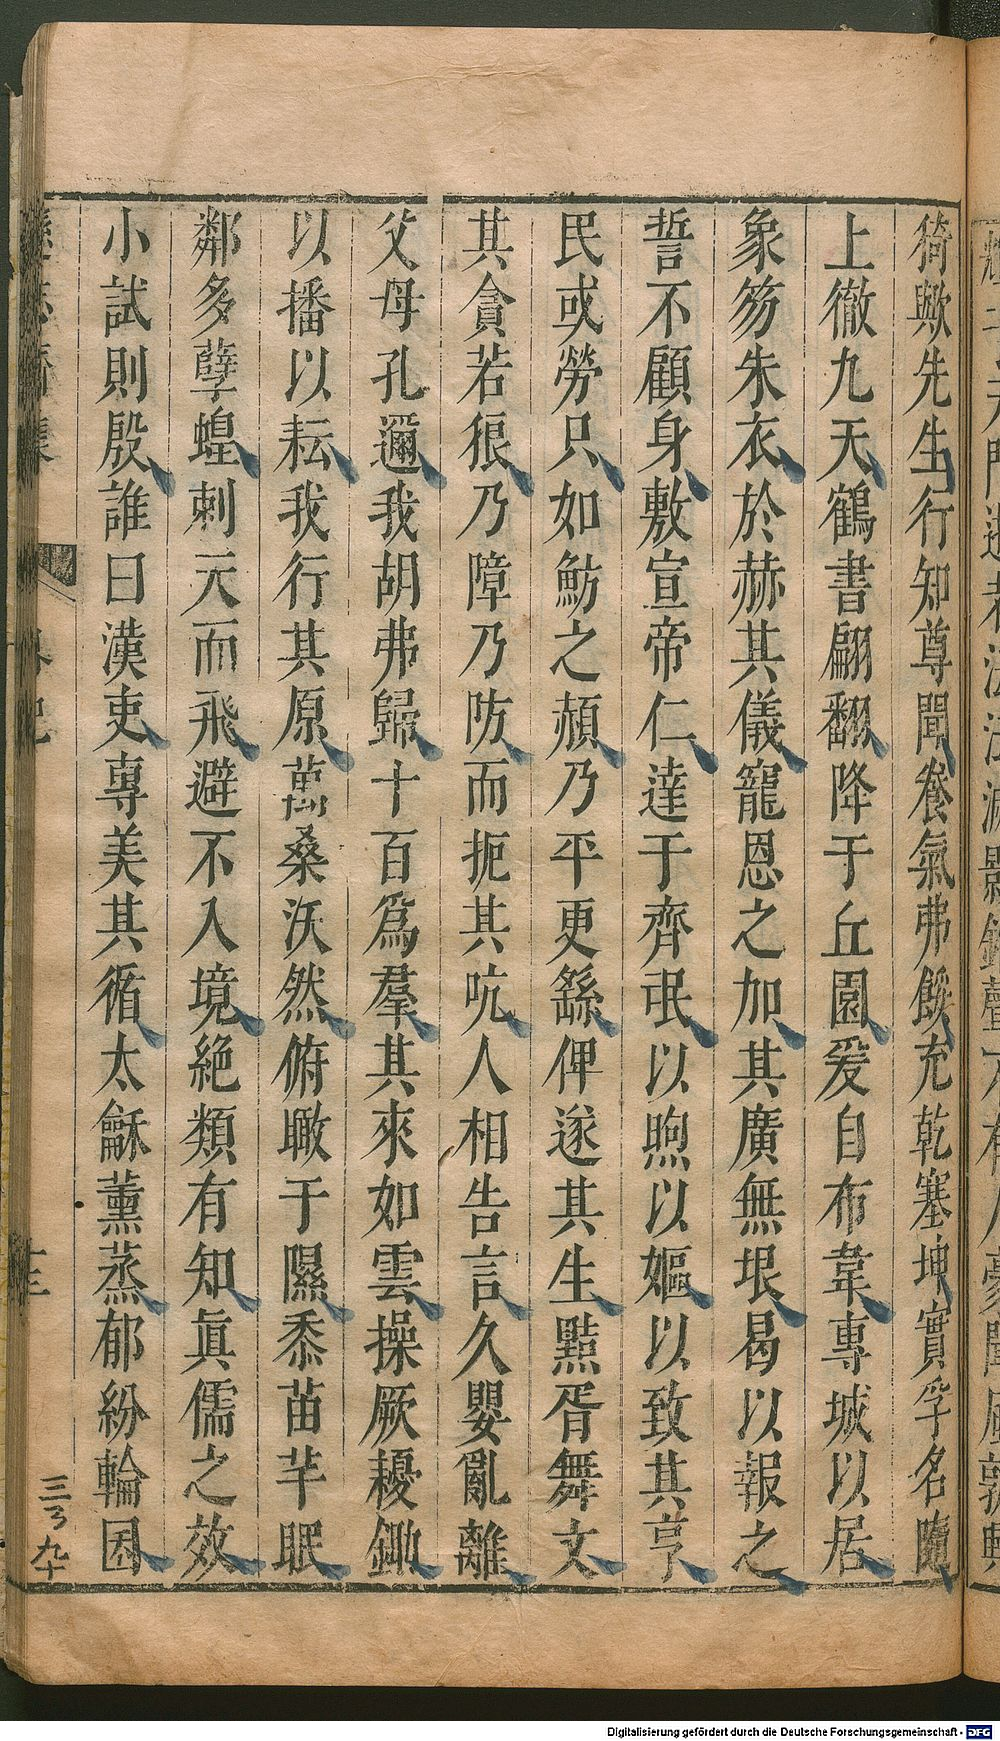 猗歟先生行知尊聞養氣弗餒充乾塞坤實孚名隨
上徹九天鶴書翩翻降于丘園爰自布韋專城以居
象笏朱衣於赫其儀寵恩之加其廣無垠曷以報之
誓不顧身敷宣帝仁達于齊氓以煦以嫗以致其亨
民或勞只如魴之赬乃平更繇俾遂其生黠胥舞文
其貪若狠乃障乃防而扼其吭人相告言久嬰亂離
父母孔邇我胡弗歸十百爲羣其來如雲操厥耰鋤
以播以耘我行其原萬桑沃然俯瞰于隰黍苗芊眠
鄰多孽蝗刺天而飛避不入境絶類有知眞儒之效
小試則殷誰曰漢吏專美其循太龢薰蒸郁紛輪囷
三百九十
Digitalisierung gefördert durch die Deutsche Forschungsgemeinschaft - DFG